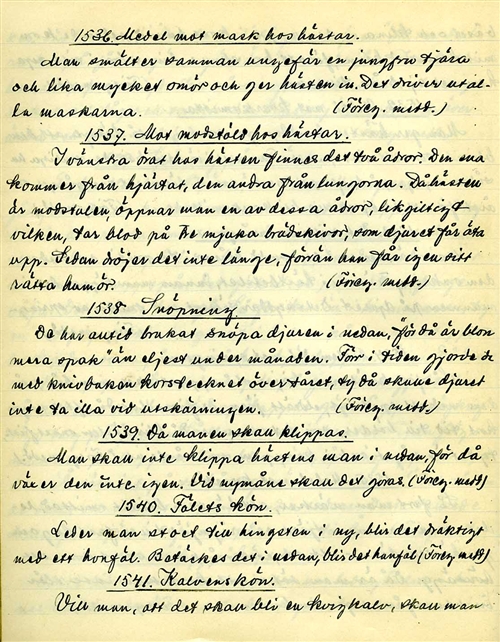 1536. Medel mot mask hos hästar.
Man smälter samman ungefär en jungfru tjära
och lika mycket smör och ger hästen in. Det driver ut al-
la maskarna. (Föreg. medd.)
1537. Mot modstöld hos hästar.
I vänstra örat hos hästen finnes det två ådror. Den ena
kommer från hjärtat, den andra från lungorna. Då hästen
är modstulen, öppnar man en av dessa ådror, likgiltigt
vilken, tar blod på tre mjuka brödskivor, som djuret får äta
upp. Sedan dröjer det inte länge, förrän han får igen sitt
rätta humör. (Föreg. medd.)
1538 Snöpning
De har alltid brukat snöpa djuren i nedan, "för då är blon
mera spak" än eljest under månaden. Förr i tiden gjorde de
med knivbakan korstecknet över såret, ty då skulle djuret
inte ta illa vid utskärningen. (Föreg. medd.)
1539. Då manen skall klippas.
Man skall inte klippa hästens man i nedan, för då
växer den inte igen. Vid nymåne skall det göras. (Föreg. medd)
1540. Fölets kön.
Leder man stoet till hingsten i ny, blir det dräktigt
med ett honföl. Betäckes det i nedan, blir det hanföl (Föreg. medd)
1541. Kalvens kön.
Vill man, att det skall bli en kvigkalv, skall man